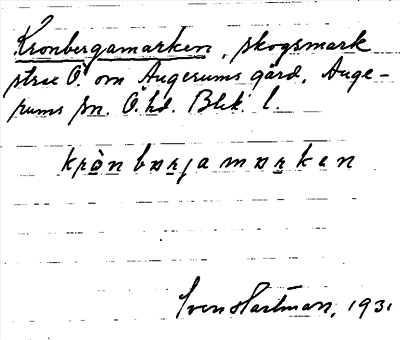 Kronbergamarken, skogsmark
strax Ö. om Augerums gård, Auge-
rums sn. Ö. hd. Blek. l.
krònbærjamarken
Sven Hartman, 1931